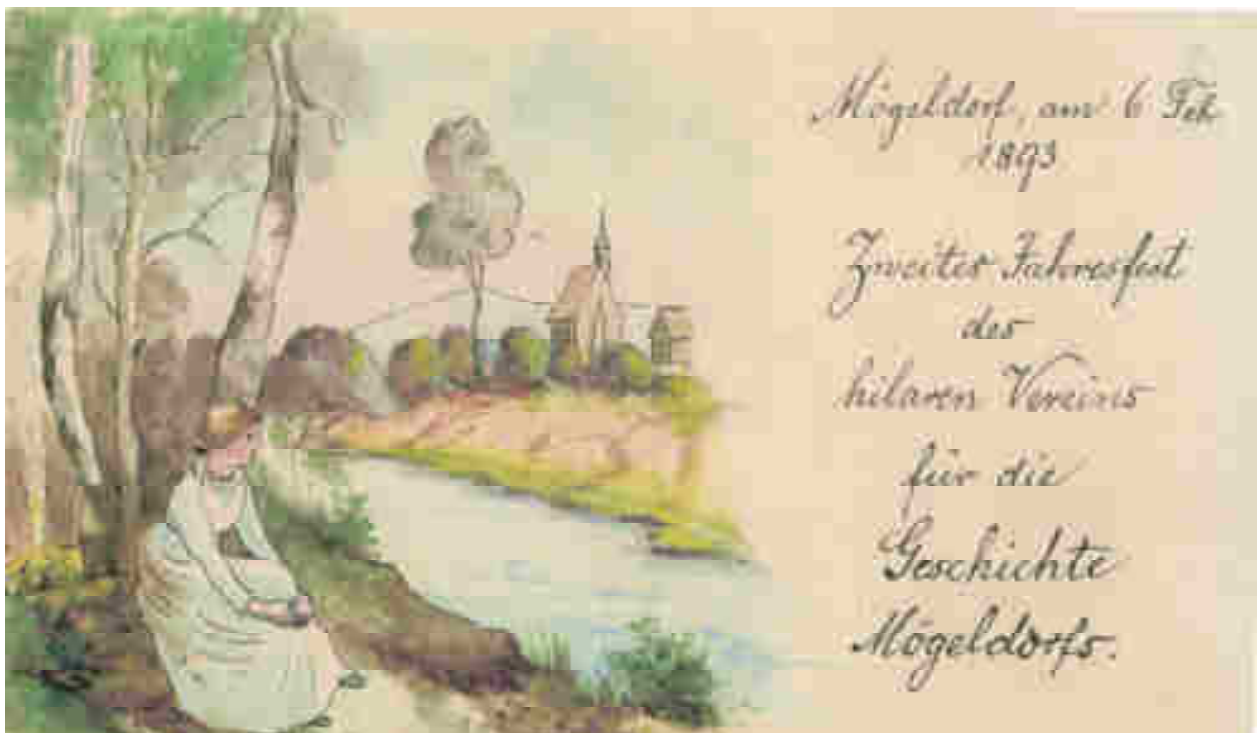 Mögeldorf, am 6 Feb.
1893
Zweites Jahresfest
des
hilaren Vereins
für die
Geschichte
Mögeldorfs.